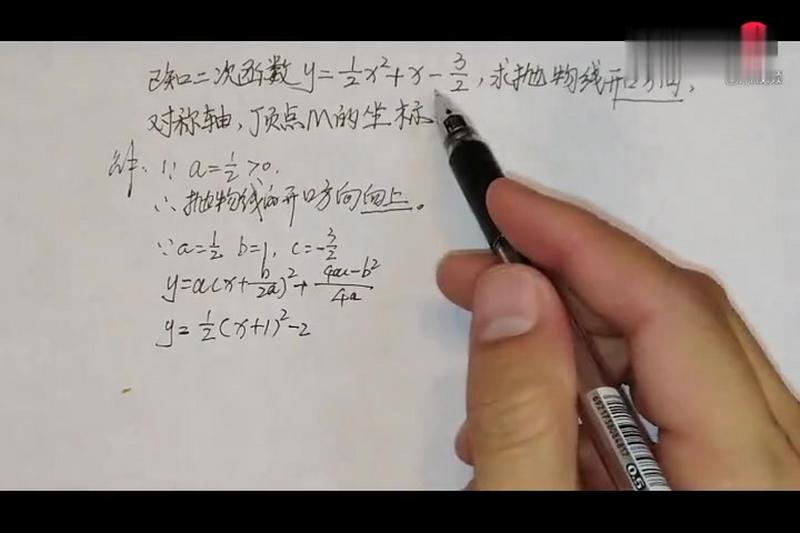 已知二次函数y=½x²+x-3/2,求抛物线开口方向,
对称轴,顶点M的坐标
解:∵ a=½>0.
∴ 抛物线的开口方向向上。
∵a=½ b=1, c=-3/2
y=a(x+b/2a)²+(4ac-b²)/4a
y=½(x+1)²-2
0.5